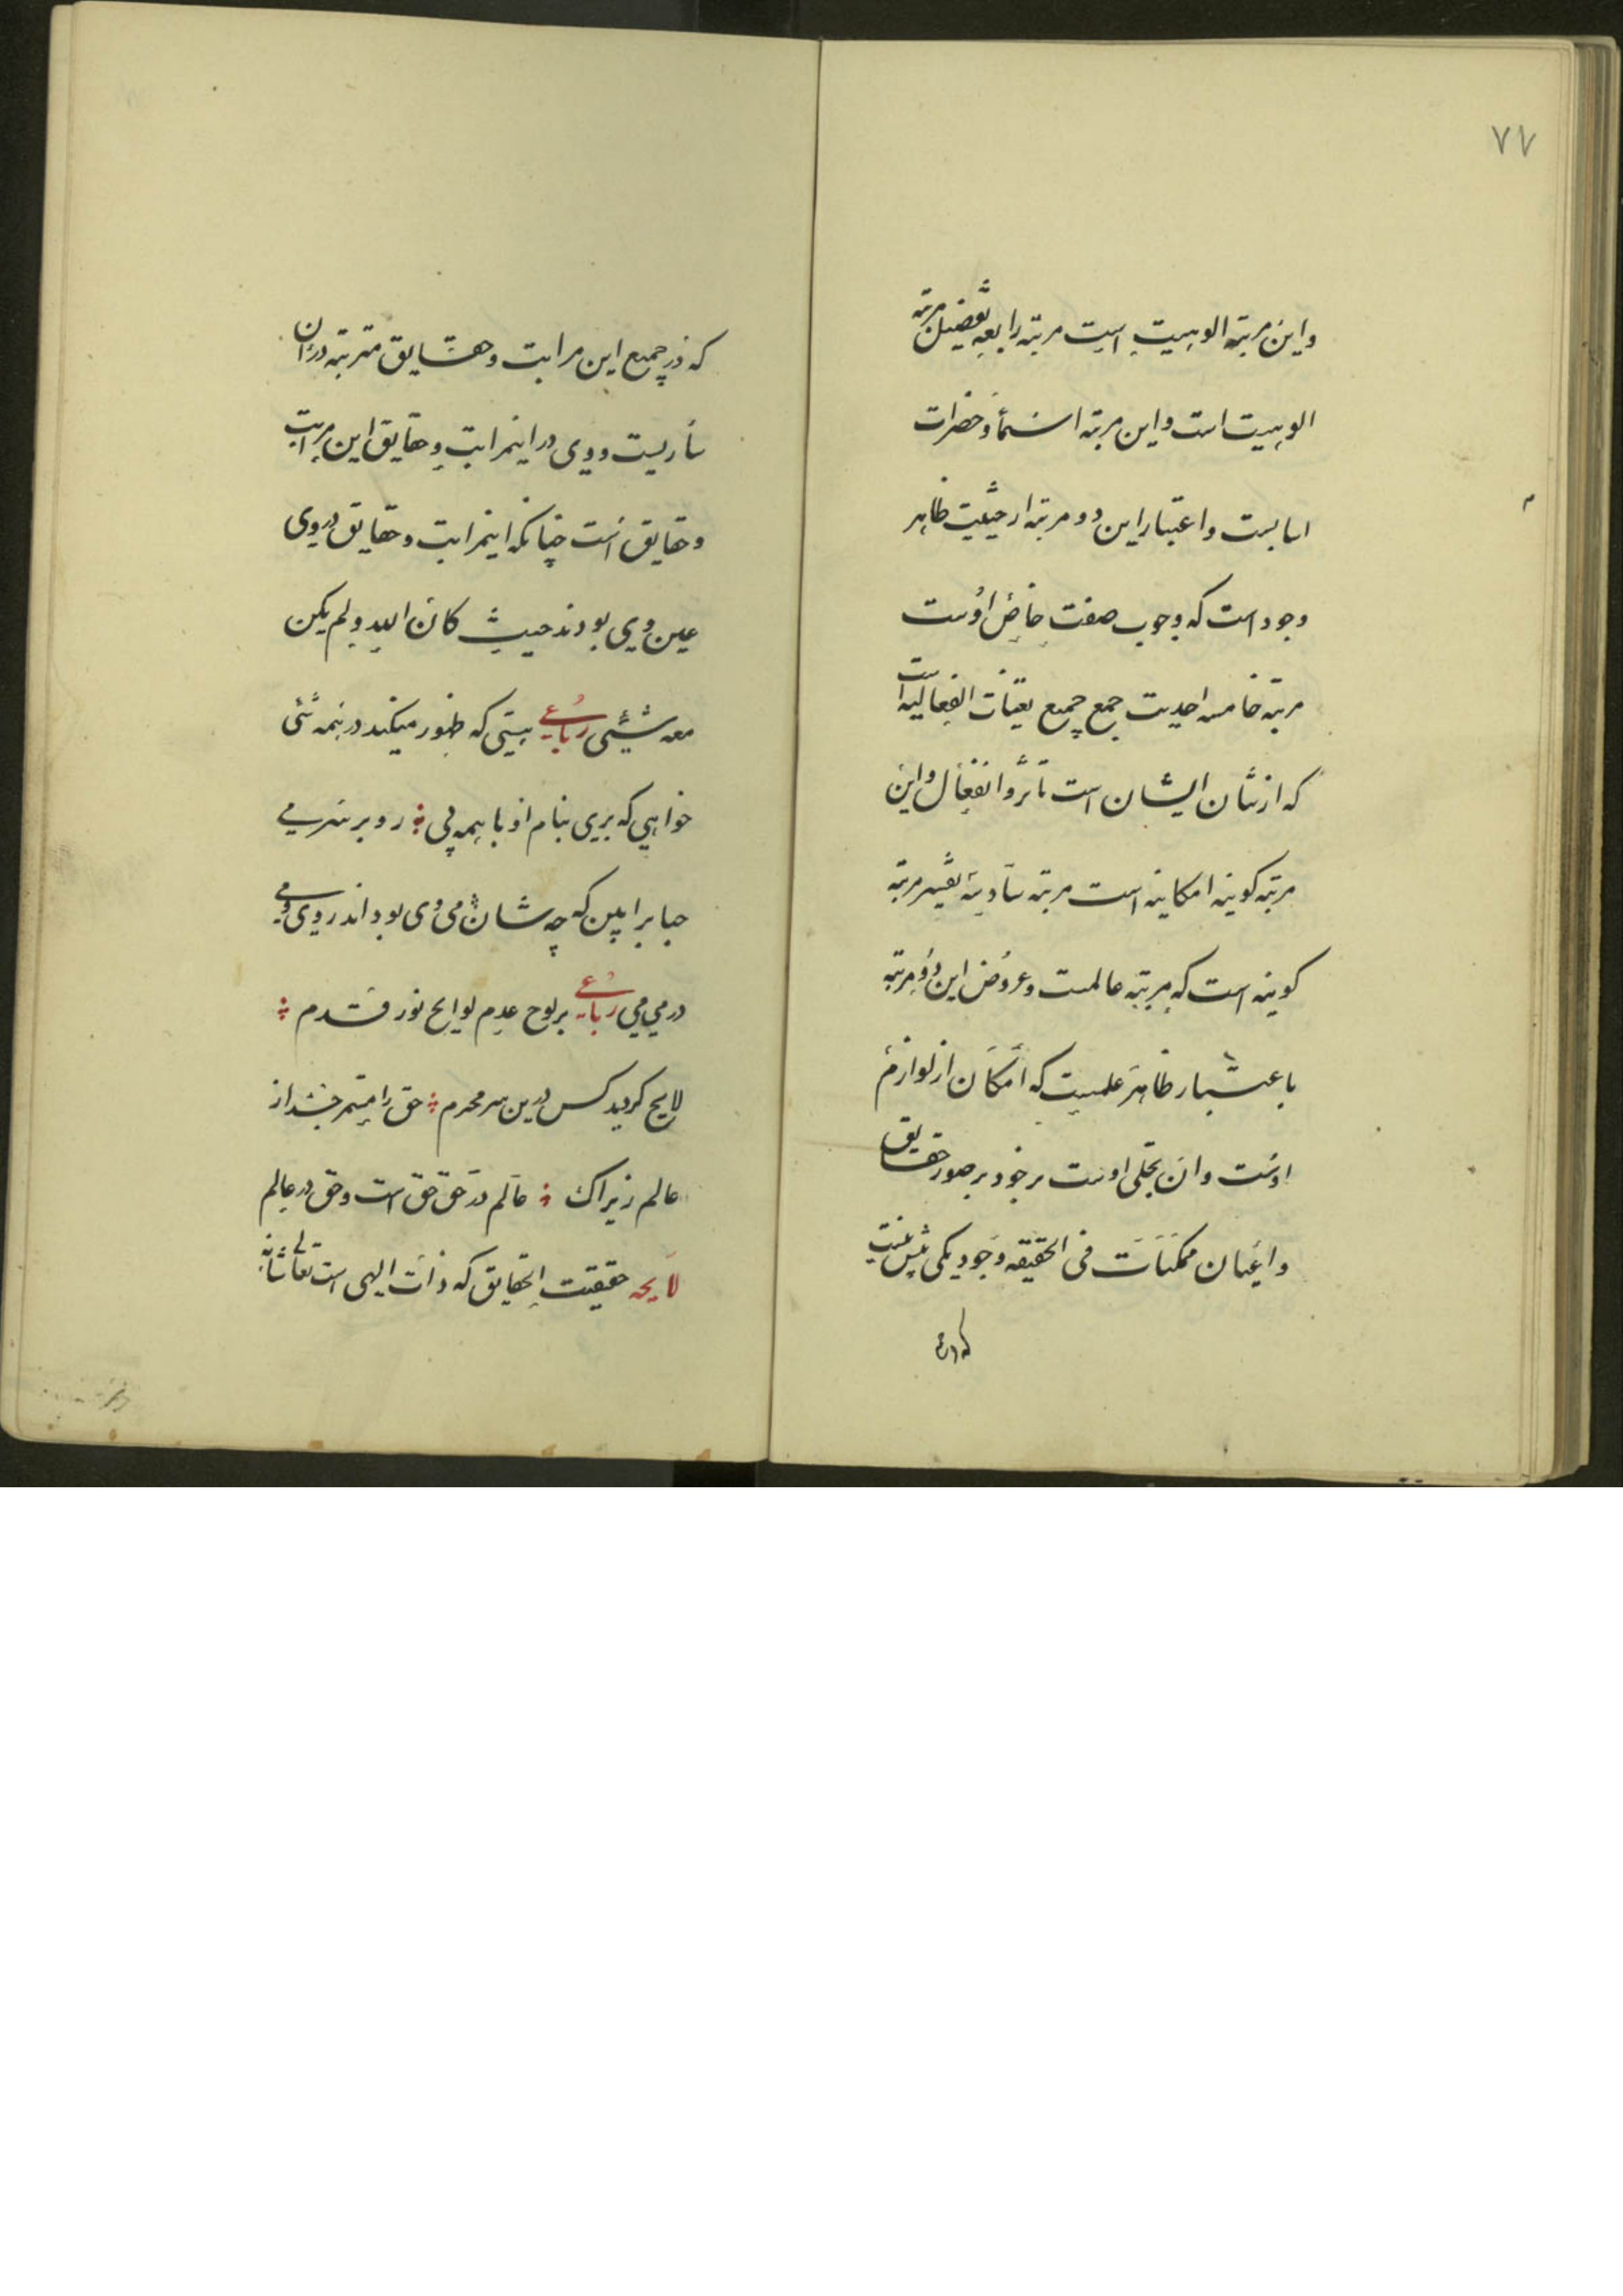 ۷۷
واین مرتبه الوهیت است مرتبه رابعه تفصیل مرتبه
الوهیت است واین مرتبه اسما و حضرات
اسایست واعتبار این دو مرتبه از حیثیت ظاهر
وجود است که وجوب صفت خاص اوست
مرتبه خامسه احدیت جمع جمیع تعینات انفعالیه است
که از شان ایشان است تاثر و انفعال و این
مرتبه کونیه امکانیه است مرتبه سادسه تفسیر مرتبه
کونیه است که مرتبه عالمست و عروض این دو مرتبه
باعتبار ظاهر علمیت که امکان از لوازم
اوست وان تجلی اوست برخود بر صور حقایق
واعیان ممکنات فی الحقیقه وجود یکی بیش نیست
که در
که در جمیع این مراتب و حقایق مترتبه دران
ساریست و وی در اینمراتب و حقایق این مراتب
و حقایق است چنانکه اینمراتب و حقایق در وی
عین وی بودند حیث کان الله و لم یکن
معه شیئی رباعی هستی که ظهور میکند در همه شئی
خواهی که بری بنام او با همه پی ؞ رو بر سر می
حبا برا بین که چه شان می وی بود اندر وی و می
در می می رباعیه بر لوح عدم لوایح نور قدم ؞
لایح کردید کس درین سر محرم ؞ حق را مشمر جدا از
عالم زیراک ؞ عالم در حق حق است و حق در عالم
لایحه حقیقت الحقایق که ذات الهی است تعالی شانه